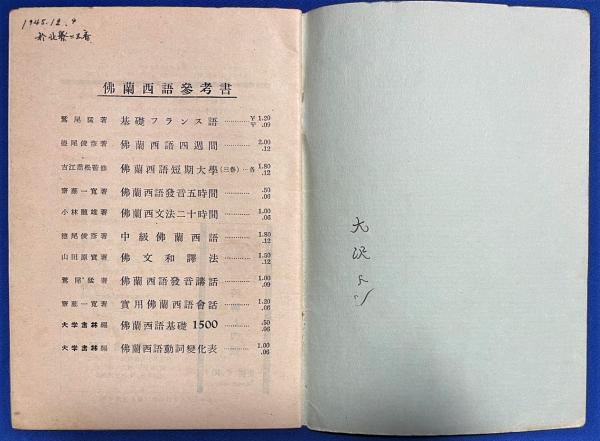 1945.12.9
佛蘭西語參考書
鷲尾猛著 基礎フランス語 ………… ¥ 1.20 〒 .09
德尾俊彥著 佛蘭西語四週間 ………… 2.00 .12
吉江喬松監修 佛蘭西語短期大學(三卷)‥各 1.80 .12
齋藤一寬著 佛蘭西語發音五時間 ………… .50 .06
小林龍雄著 佛蘭西文法二十時間 ………… 1.00 .06
德尾俊彥著 中級佛蘭西語 ………… 1.80 .12
山田原實著 佛文和譯法 ………… 1.50 .12
鷲尾猛著 佛蘭西語發音講話 ………… 1.00 .09
齋藤一寬著 實用佛蘭西語會話 ………… 1.20 .06
大学書林編 佛蘭西語基礎1500 ………… .50 .06
大学書林編 佛蘭西語動詞變化表 ………… 1.00 .06
大沢